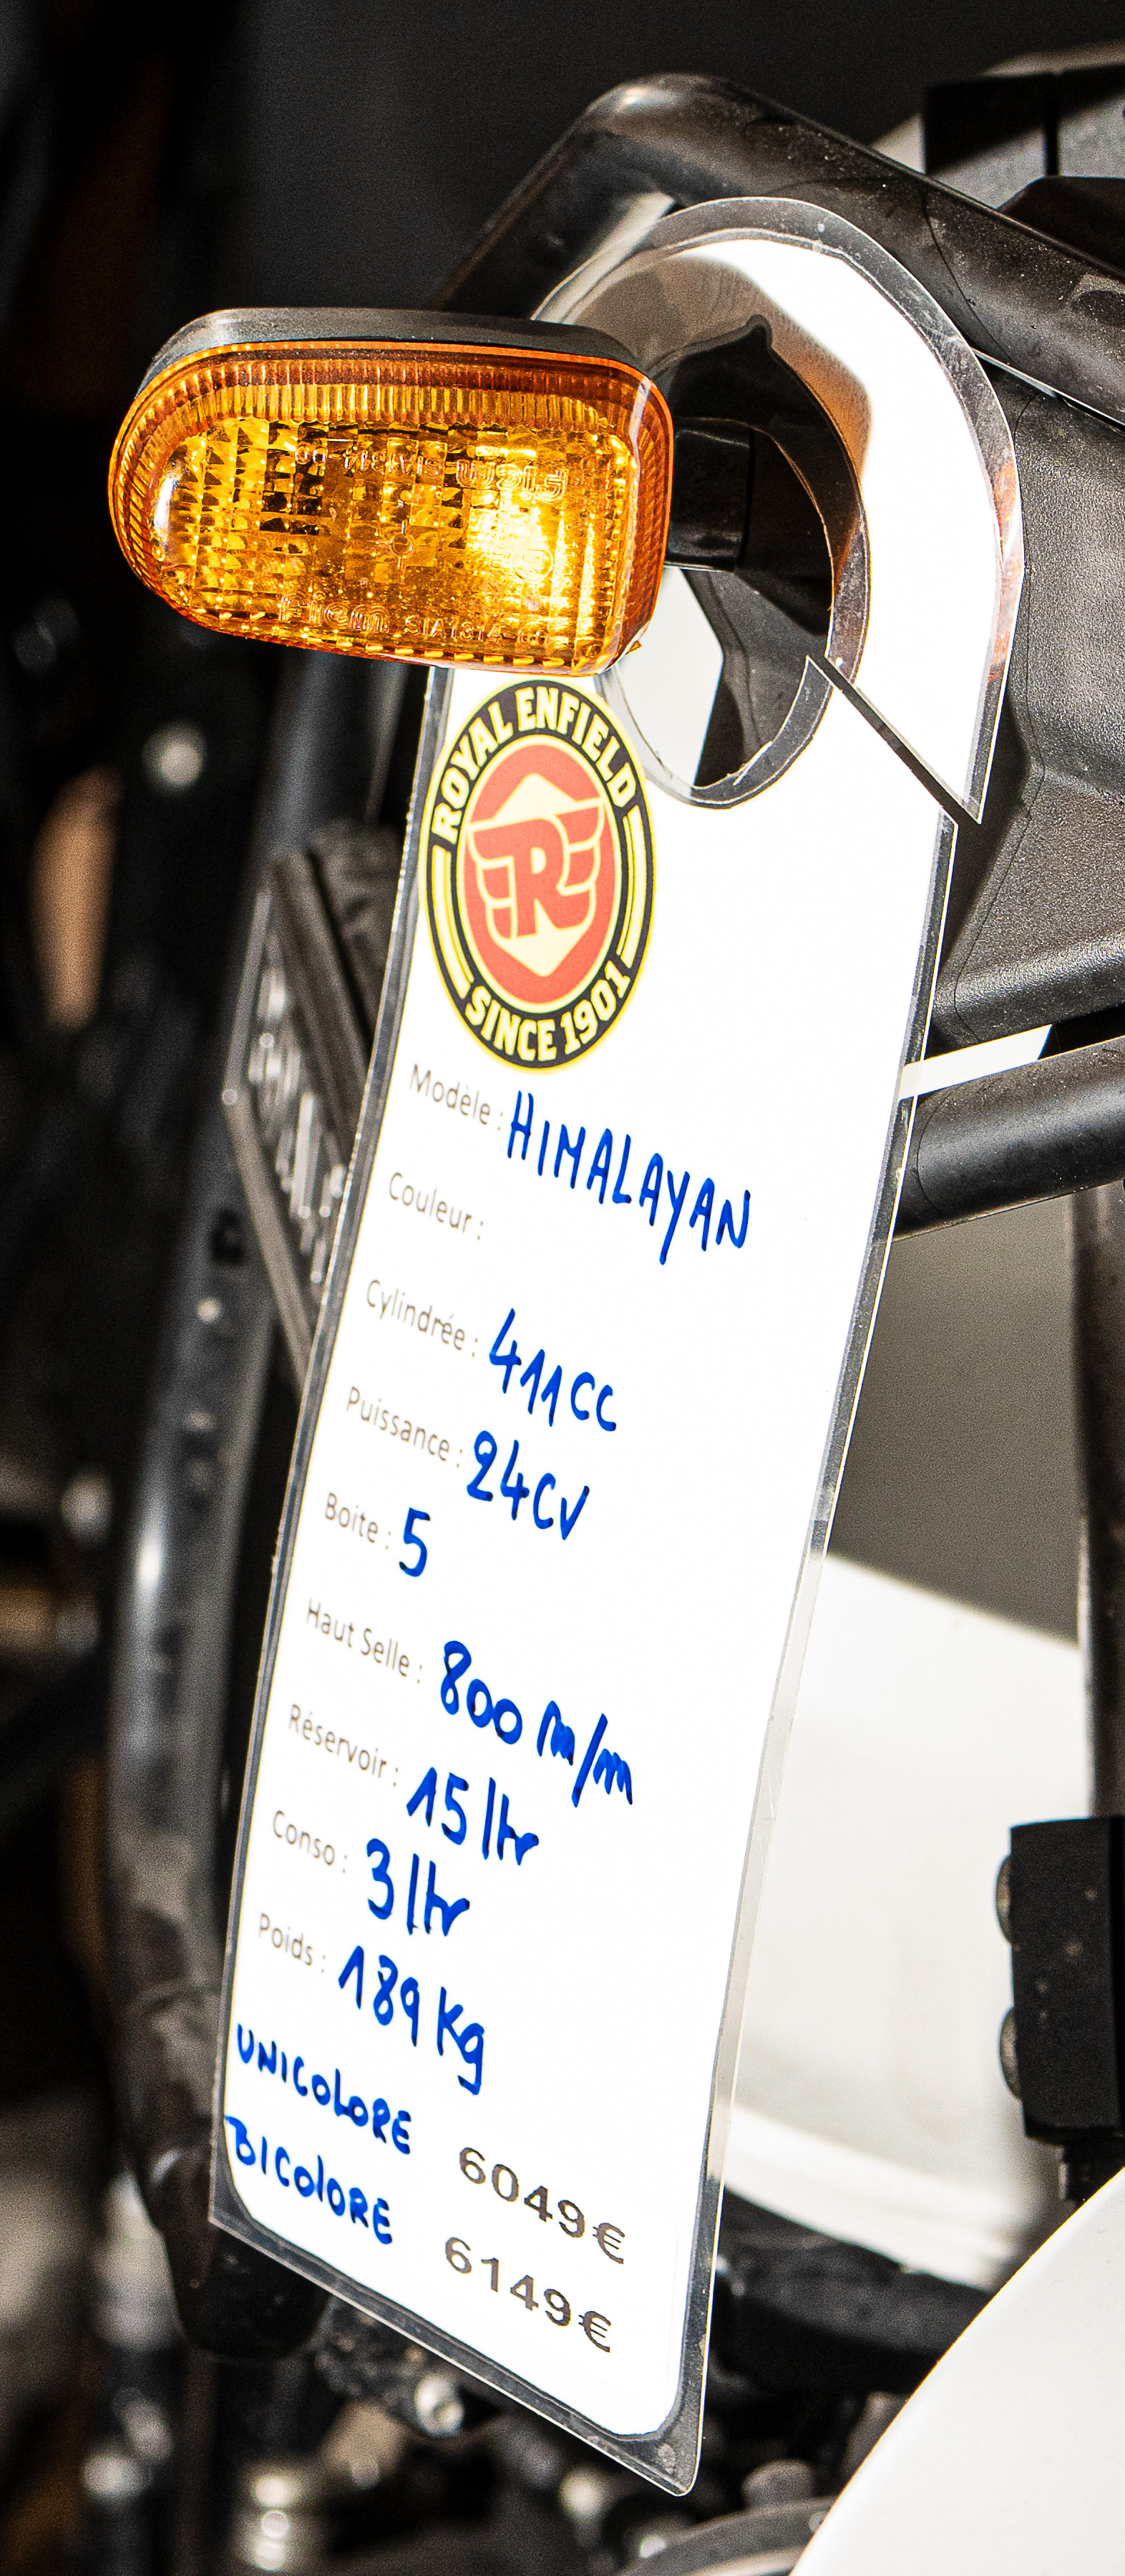 ROYAL ENFIELD
R
SINCE 1901
Modèle : HIMALAYAN
Couleur :
Cylindrée : 411CC
Puissance : 24CV
Boite : 5
Haut Selle : 800 m/m
Réservoir : 15 ltr
Conso : 3 ltr
Poids : 189 Kg
UNICOLORE 6049€
BICOlORE 6149€